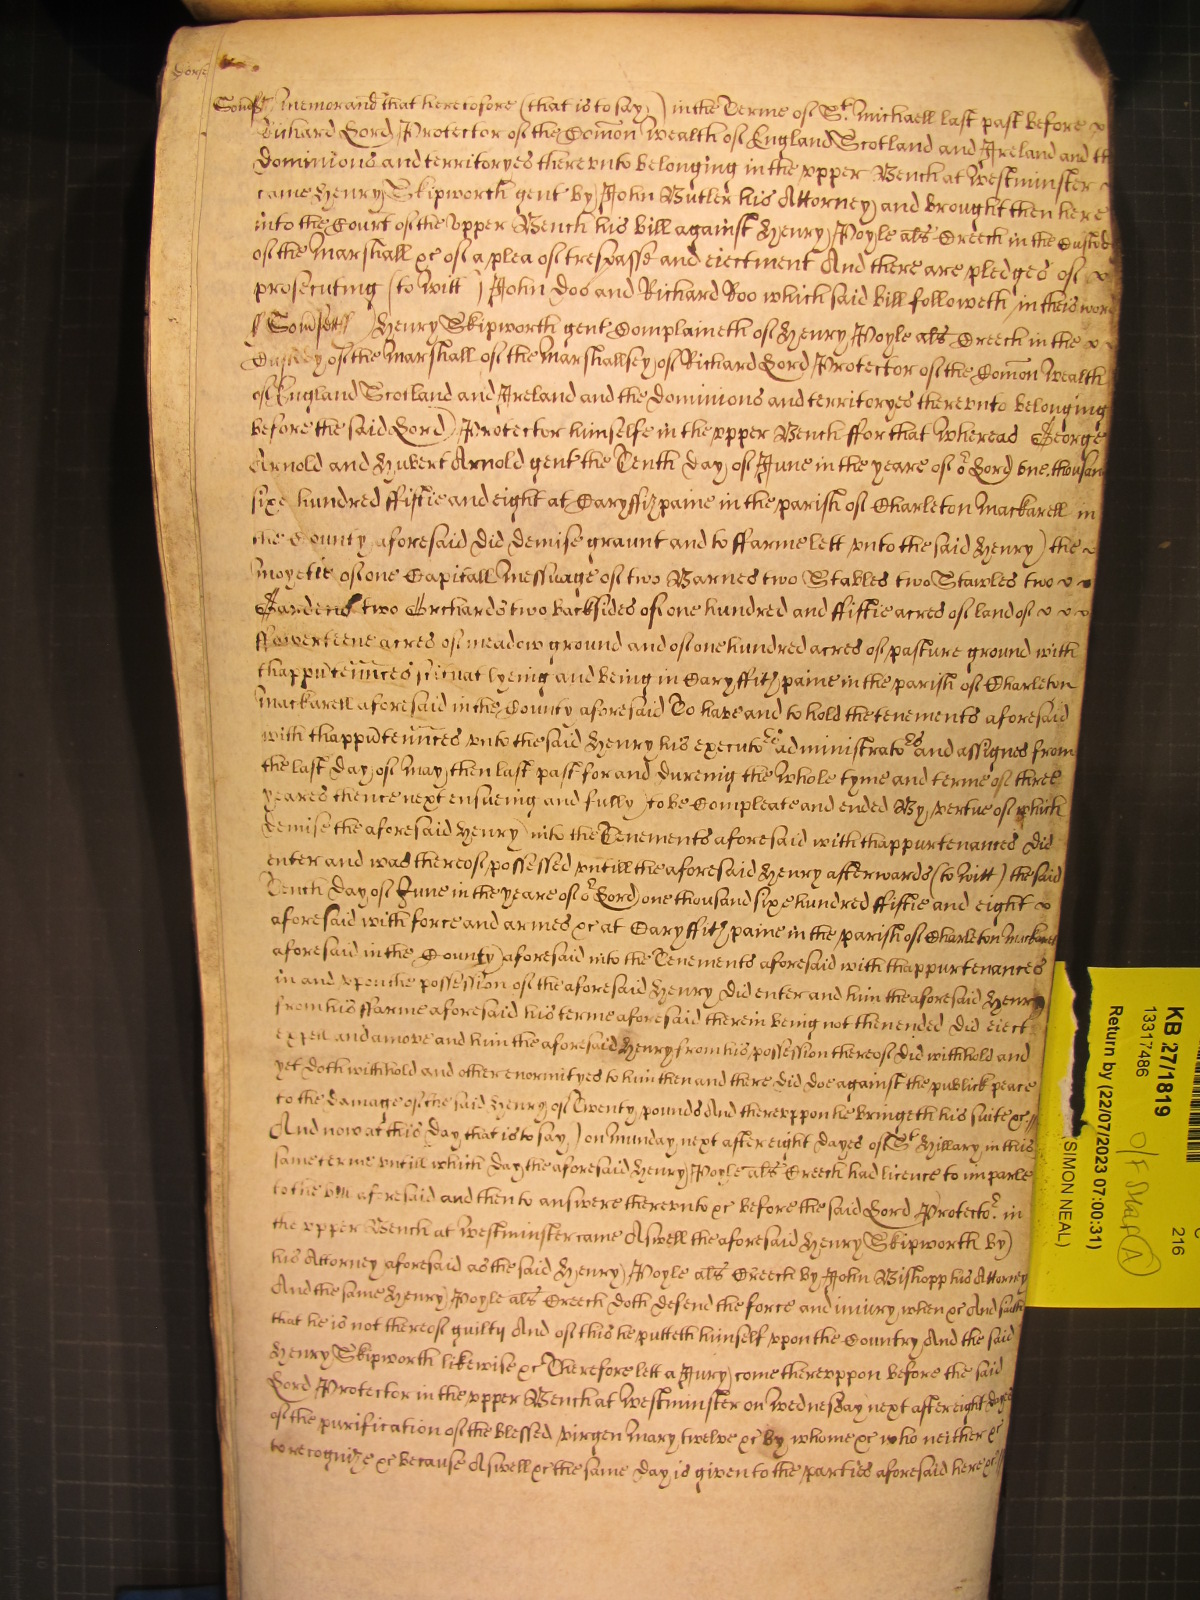 Somsett Memorand that heretofore (that is to say) in the Terme of St. Michaell last past before
Richard Lord Protector of the Comon Wealth of England Scotland and Ireland and th
dominions and territoryes therevnto belonging in the vpper Bench at Westminster
came Henry Skipworth gent by John Butler his Attorney and brought then here
into the Court of the vpper Bench his bill against Henry Poyle als Creech in the Custod
of the Marshall &c of a plea of trespasse and eiectment And there are pledges of
prosecuting (to Witt) John Doo and Richard Roo which said bill followeth in theis word
Somsett Henry Skipworth gent Complaineth of Henry Poyle als Creech in the
Custody of the Marshall of the Marshallsey of Richard Lord Protector of the Comon Wealth
of England Scotland and Ireland and the dominions and territoryes therevnto belonging
before the said Lord Protector himselfe in the vpper Bench ffor that Whereas George
Arnold and Hubert Arnold gent the Tenth day of June in the yeare of or Lord one thousan
sixe hundred ffiftie and eight at Caryffitzpaine in the parish of Charleton Mackarell in
the County aforesaid did demise graunt and to ffarme lett vnto the said Henry the
moyetie of one Capitall Messuage of two Barnes two Stables two Stawles two
Gardens two Orchards two backsides of one hundred and ffiftie acres of land of
ffowerteene acres of meadow ground and of one hundred acres of pasture ground with
thappurtennces scituat lyeing and being in Caryffitzpaine in the parish of Charleton
Mackarell aforesaid in the County aforesaid To have and to hold the tenements aforesaid
with thappurtennces vnto the said Henry his executors administrators and assignes from
the last day of May then last past for and dureing the Whole tyme and terme of three
yeares thence next ensueing and fully to be Compleate and ended By vertue of which
demise the aforesaid Henry into the Tenements aforesaid with thappurtenances did
enter and was thereof possessed vntill the aforesaid Henry afterwards (to Witt) the said
Tenth day of June in the yeare of or Lord one thousand sixe hundred ffiftie and eight
aforesaid with force and armes &c at Caryffitzpaine in the parish of Charleton Mackarell
aforesaid in the County aforesaid into the Tenements aforesaid with thappurtenances
in and vpon the possession of the aforesaid Henry did enter and him the aforesaid Henry
from his ffarme aforesaid his terme aforesaid therein being not then ended did eiect
expell and amove and him the aforesaid Henry from his possession thereof did withhold and
yet doth withhold and other enormityes to him then and there did doe against the publick peace
to the damage of the said Henry of Twenty pounds And therevppon he bringeth his suite &c
And now at this day that is to say) on Munday next after eight dayes of St Hillary in this
same terme vntill which day the aforesaid Henry Poyle als Creech had licence to imparle
to the bill aforesaid and then to answere therevnto &c before the said Lord Protector in
the vpper Bench at Westminster came Aswell the aforesaid Henry Skipworth by
his Attorney aforesaid as the said Henry Poyle als Creech by John Bishopp his Attorney
And the same Henry Poyle als Creech doth defend the force and iniury when &c And saith
that he is not thereof guilty And of this he putteth himself vpon the Country And the said
Henry Skipworth likewise &c Therefore lett a Jury come therevppon before the said
Lord Protector in the vpper Bench at Westminster on Wednesday next after eight dayes
of the purification of the blessed virgen Mary twelve &c by whome &c who neither &c
to recognize &c because Aswell &c the same day is given to the parties aforesaid here &c
KB 27/1819
13317486
O/F
A
216
Return by (22/07/2023 07:00:31)
(SIMON NEAL)